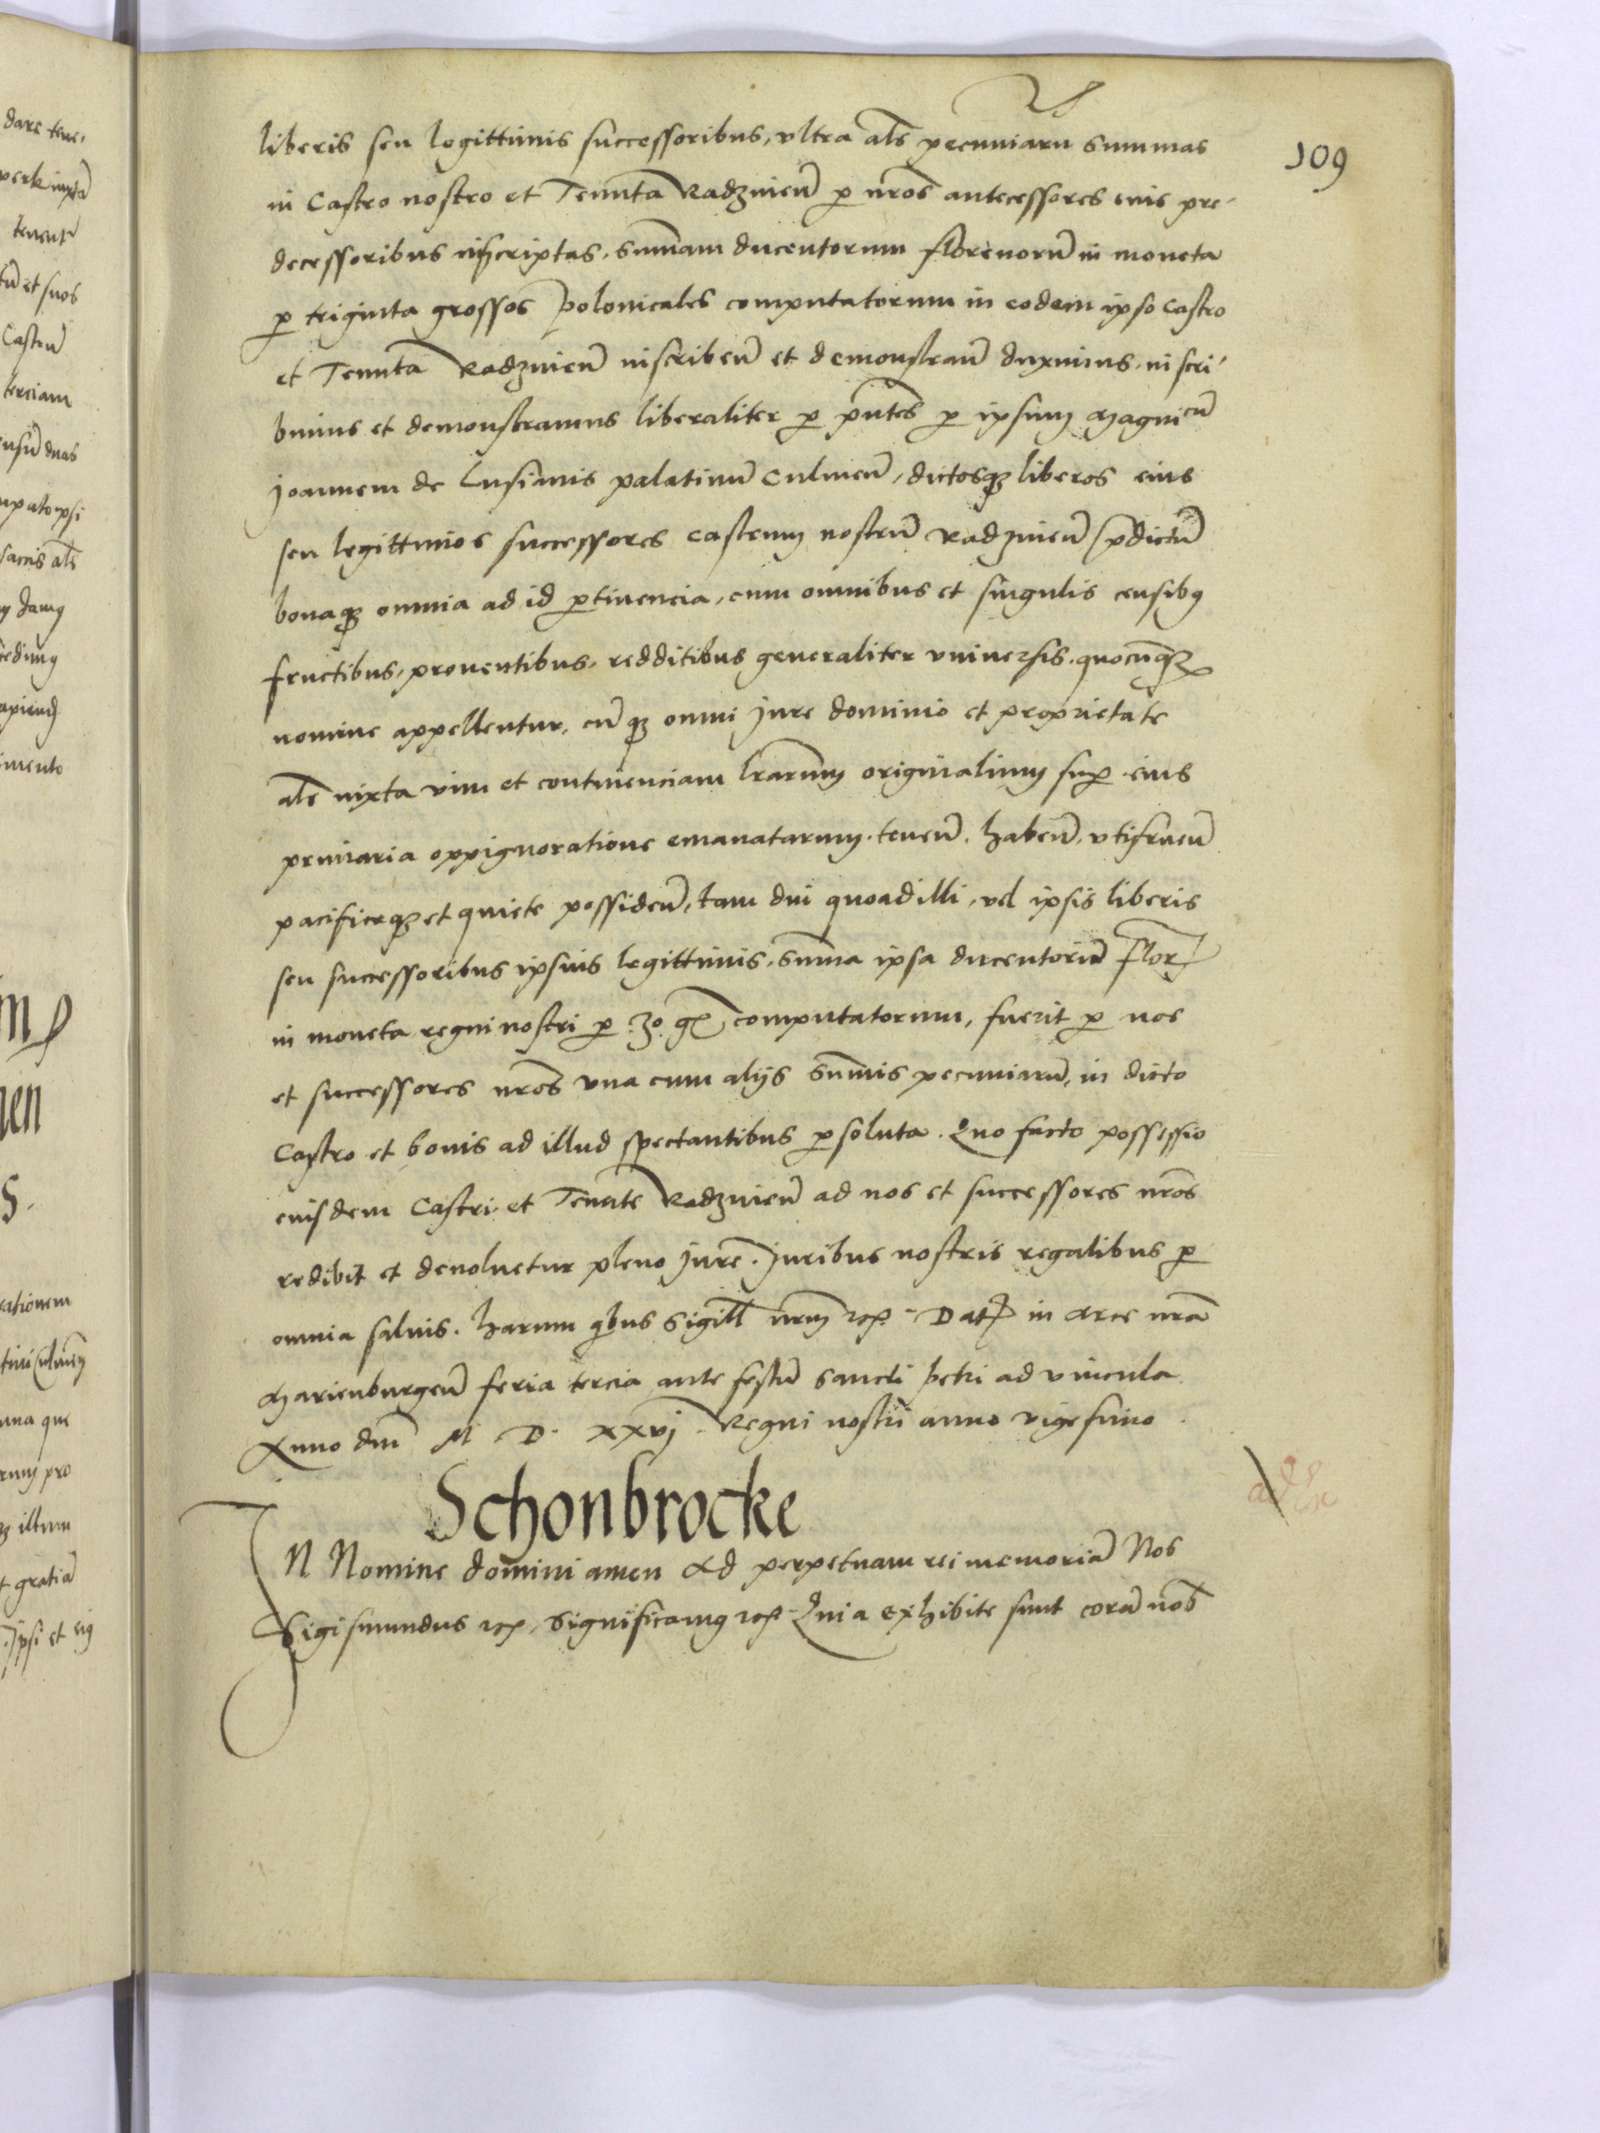 109
liberis seu legittimis successoribus, vltra als pecuniaru summas
in Castro nostro et Tenuta Radzinen̄ p nros antecessores suis pre-
decessoribus inscriptas, sum̄am ducentorum florenorū in moneta
p triginta grossos polonicales computatorum in eodem ipso Castro
et Tenuta Radzinen̄ inscriben̄ et demonstran̄ duximus, inscri-
bimus et demonstramus liberaliter p pn̄tes p ipsum Magnicū
Joannem de Lusianis palatinū Culmen̄, dictosq̃ liberos eius
seu legittimos successores castrum nostrū Radzinen̄ p̄dictū
bonaq̃ omnia ad id ptinencia, cum omnibus et singulis censibȝ
fructibus, prouentibus, redditibus generaliter vniuersis, quocūq̃
nomine appellentur, cū q̃ omni Jure dominio et proprietate
als iuxta vim et continenciam lrarum originalium sup eius
primaria oppignoratione emanatarum, tenen̄, haben̄, vtifruen̄
pacificeq̃ et quiete possiden̄, tam diu quoad illi, vel ipsis liberis
seu successoribus ipsius legittimis, sum̄a ipsa ducentorū Flor
in moneta regni nostri p 30 gr computatorum, fuerit p nos
et successores nros vna cum alijs sum̄is pecuniarū, in dicto
Castro et bonis ad illud spectantibus psoluta. Quo facto possessio
eiusdem Castri et Tenute Radzinen̄ ad nos et successores nros
redibit et deuoluetur pleno Jure. Juribus nostris regalibus p
omnia saluis. Harum qibus Sigill nrm̄ rc̄. Dat in Arce nra
Marienburgen̄ feria tercia ante festū Sancti Petri ad vincula
Anno dnī M D xxvj Regni nostri anno vigesimo.
Schonbrocke
IN Nomine domini amen Ad perpetuam rei memoriā Nos
Sigismundus rc̄, Significamȝ rc̄ Quia exhibite sunt corā nob̄